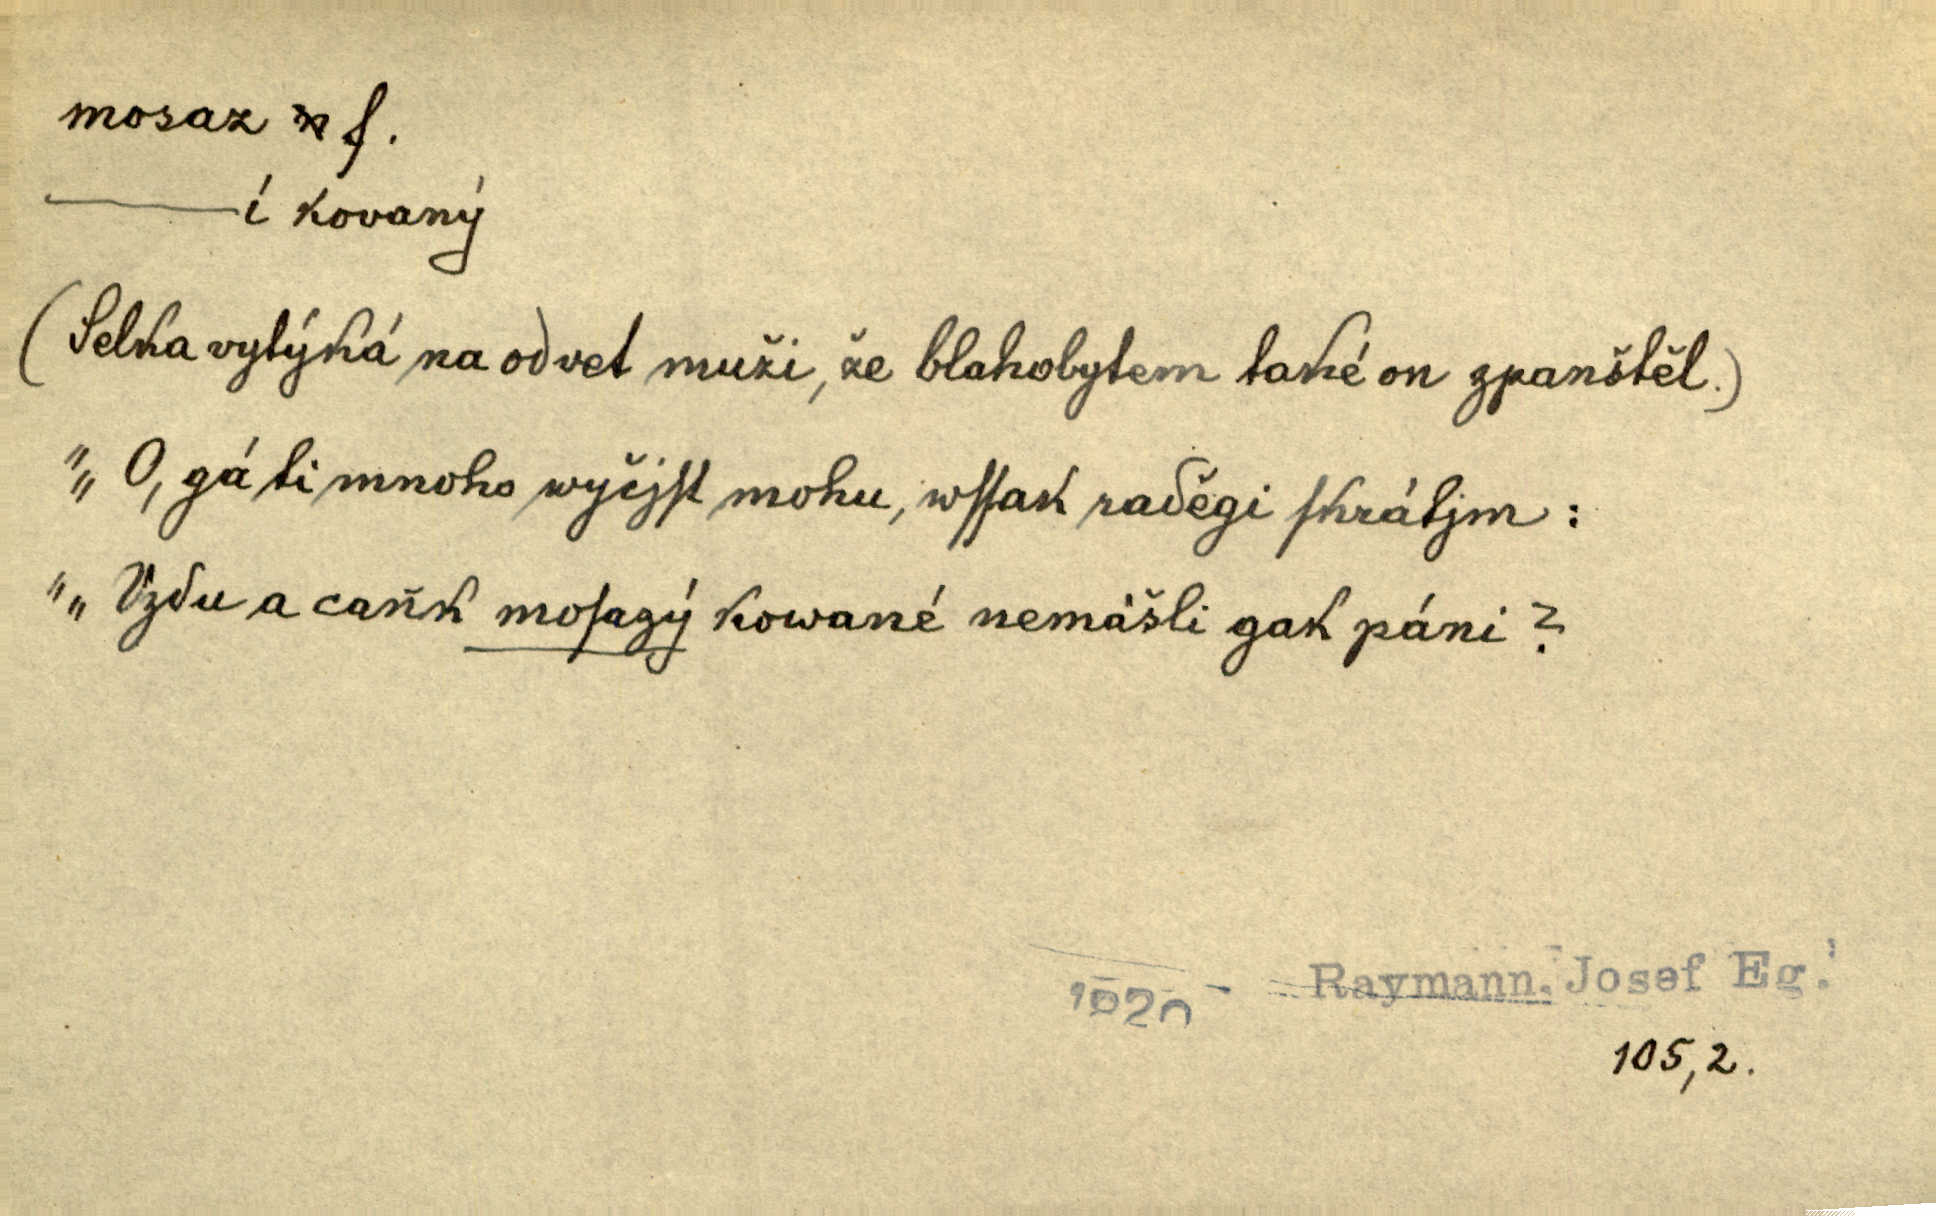 mosaz f.
——í kovaný
(Selka vytýká na odvet muži, že blahobytem také on zpanštěl.)
"„ O, gá ti mnoho wyčjſt mohu, wſſak raděgi ſkrátjm :
"„ Vzdu a caňk moſazý kowané nemášli gak páni ?
1820 - Raymann, Josef Eg.
105,2.